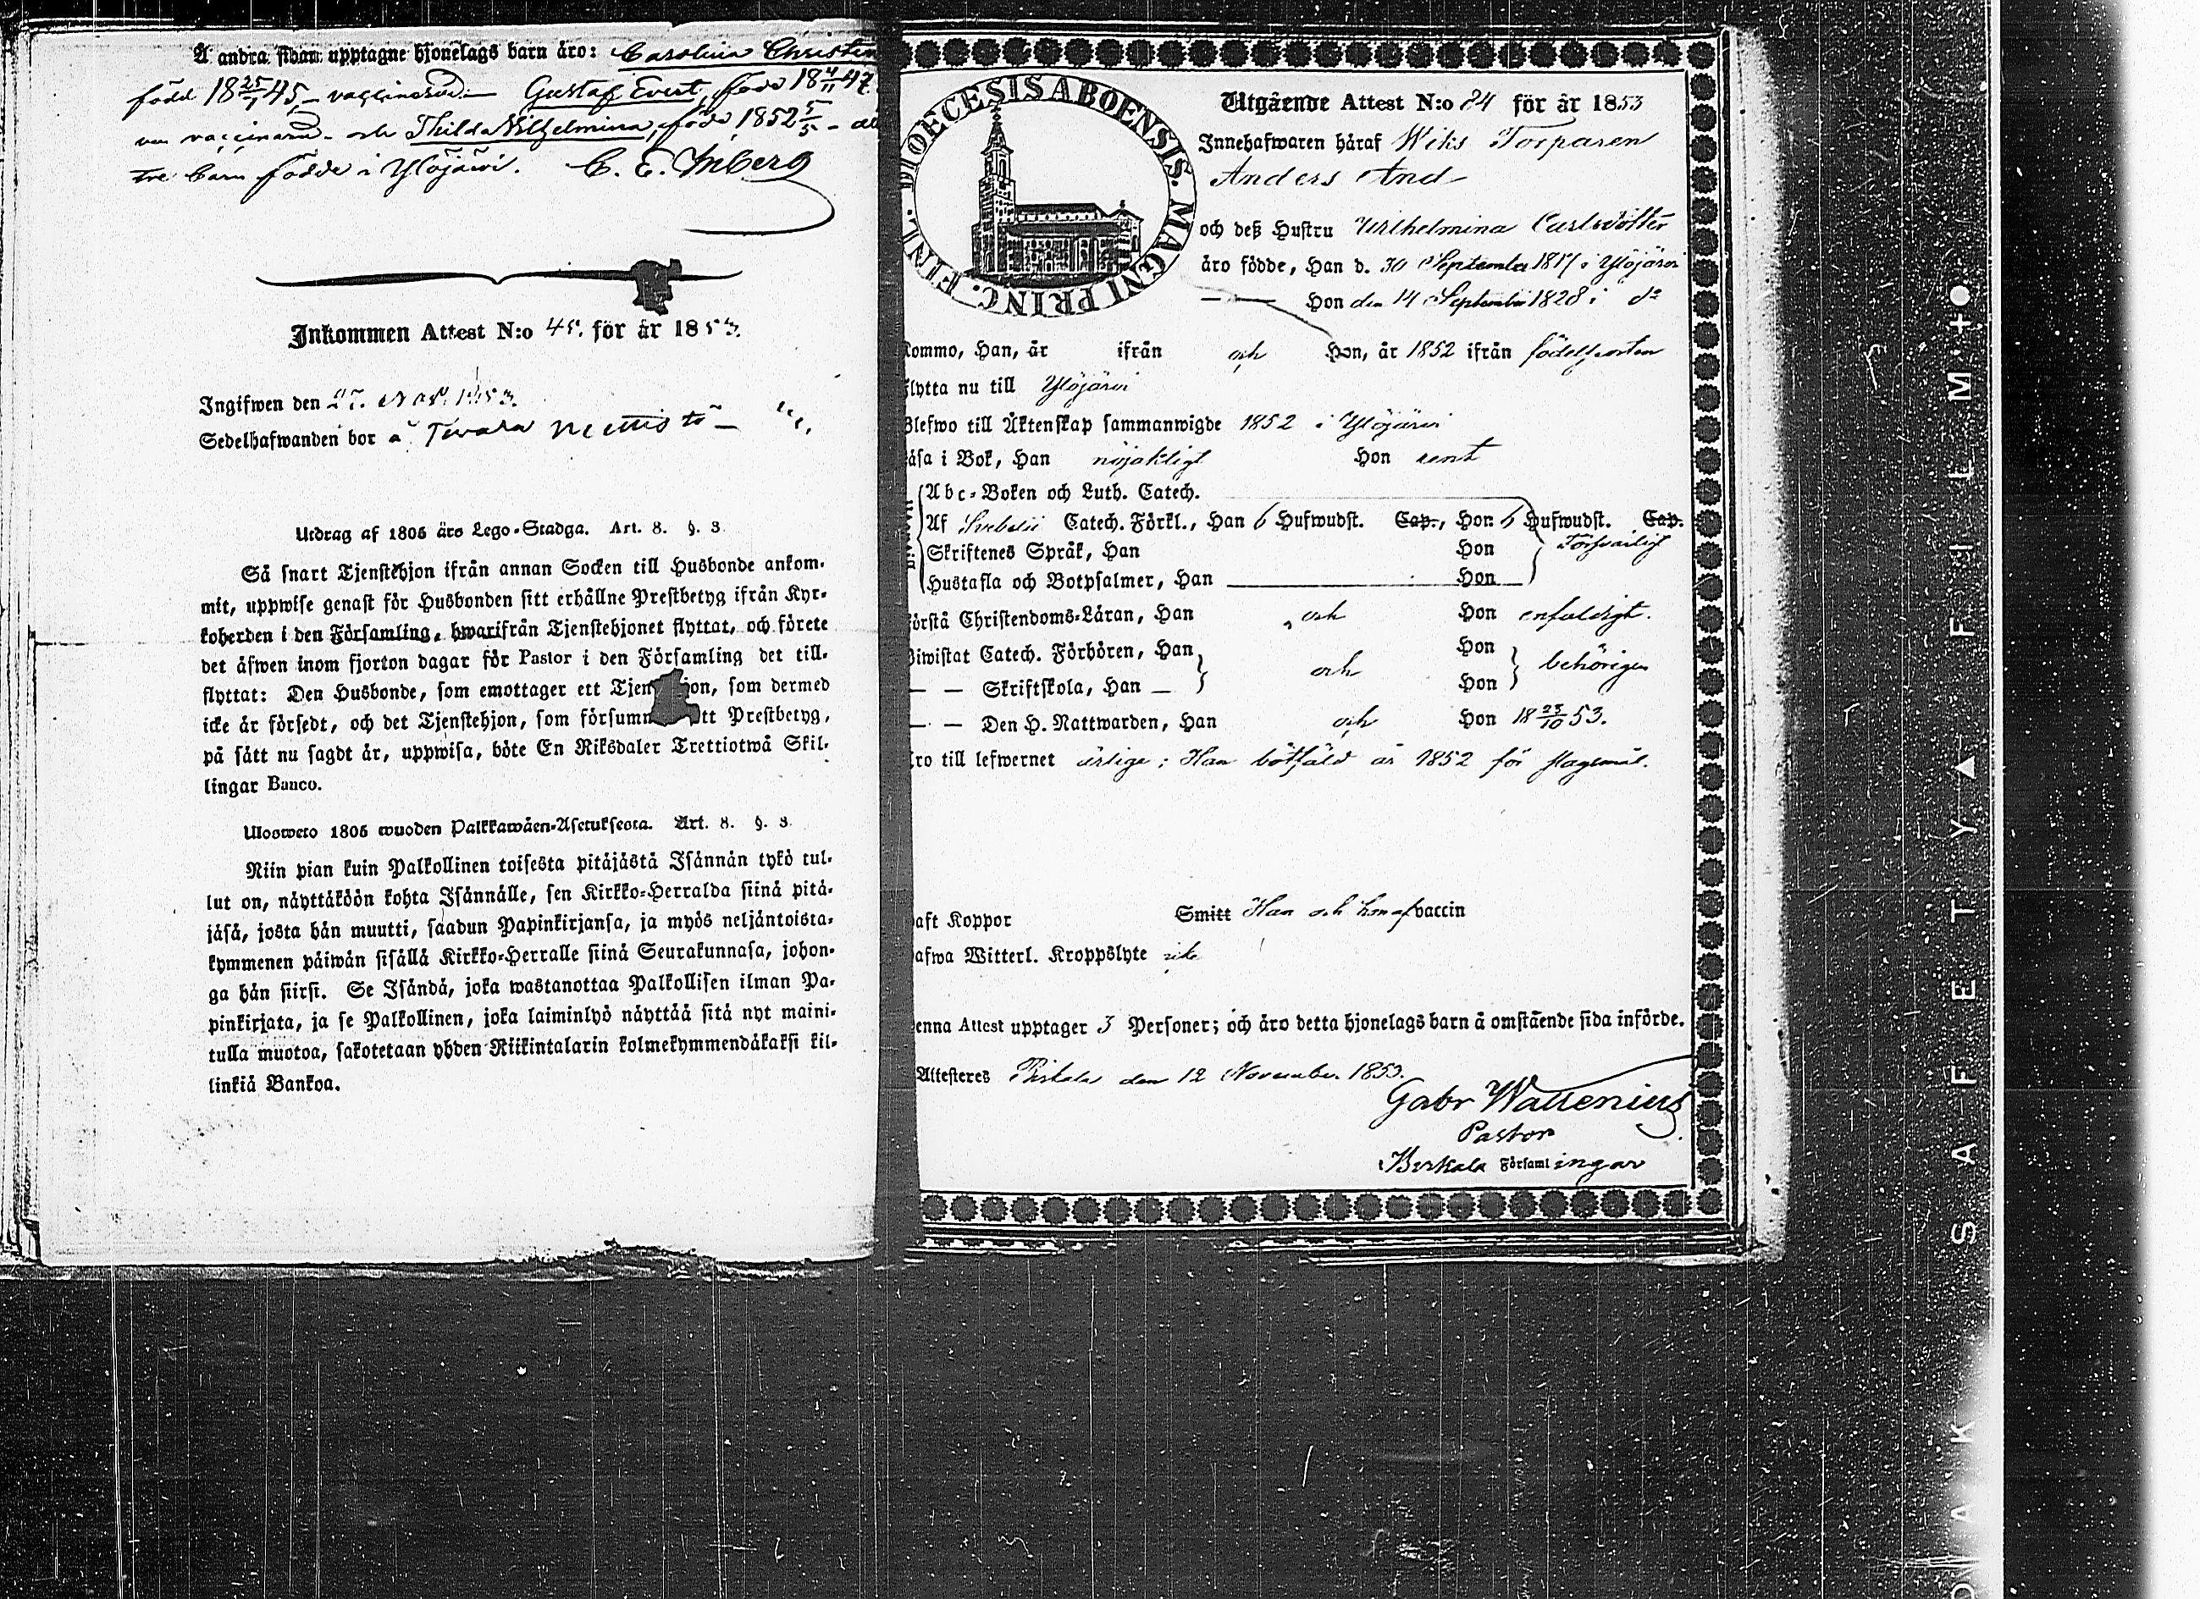 Å andra sidan upptagne hjonelags barn äro: Carolina Christin
född 18 25/1 45 – vaccinerad – Gustaf Evert, född 18 4/11 47
vaccinerad – och Thilda Wilhelmina, född 1852 5/5 –
tre barn födde i Ylöjärvi. C. E. Inberg
Inkommen Attest N:o 45. för år 1853.
Ingifwen den 27. Nov. 1853.
Sedelhafwanden bor å
Utdrag af 1805 års Lego-Stadga. Art. 8. §. 3.
Så snart Tjenstehjon ifrån annan Socken till Husbonde ankom-
mit, uppwise genast för Husbonden sitt erhållne Prestbetyg ifrån Kyr-
koherden i den Församling, hwarifrån Tjenstehjonet flyttat, och förete
det äfwen inom fjorton dagar för Pastor i den Församling det till-
flyttat: Den Husbonde, som emottager ett Tjen jon, som dermed
icke är försedt, och det Tjenstehjon, som försumm tt Prestbetyg,
på sätt nu sagdt är, uppwisa, böte En Riksdaler Trettiotwå Skil-
lingar Banco.
Ulosweto 1805 wuoden Palkkawäen-Asetuksesta. Art. 8. §. 3.
Niin pian kuin Palkollinen toisesta pitäjästä Isännän tykö tul-
lut on, näyttäköön kohta Isännälle, sen Kirkko-Herralda siinä pitä-
jäsä, josta hän muutti, saadun Papinkirjansa, ja myös neljäntoista-
kymmenen päiwän sisällä Kirkko-Herralle siinä Seurakunnasa, johon-
ga hän siirsi. Se Isändä, joka wastanottaa Palkollisen ilman Pa-
pinkirjata, ja se Palkollinen, joka laiminlyö näyttää sitä nyt maini-
tulla muotoa, sakotetaan yhden Riikintalarin kolmekymmendäkaksi kil-
linkiä Bankoa.
DIOECESIS ABOENSIS. MAGNI PRINC. FINL.
Utgående Attest N:o 84 för år 1853
Innehafwaren häraf Wiks Torparen
Anders And
och deß Hustru Wilhelmina Carlsdotter
äro födde, Han d. 30 September 1817 i Ylöjärvi
— — Hon den 14 September 1828 i do
Kommo, Han, år ifrån och Hon, år 1852 ifrån födelseorten
flytta nu till Ylöjärvi
Blefwo till Äktenskap sammanwigde 1852 i Ylöjärvi
Läsa i Bok, Han nöjaktigt Hon rent
Abc-Boken och Luth. Catech.
Af Svebelii Catech. Förkl., Han 6 Hufwudst. Cap., Hon 6 Hufwudst. Cap.
Skriftenes Språk, Han Hon försvarligt
Hustafla och Botpsalmer, Han Hon
Förstå Christendoms-Läran, Han och Hon enfaldigt.
Biwistat Catech. Förhören, Han Hon
— — Skriftskola, Han — och Hon behörigen
— — Den H. Nattwarden, Han och Hon 18 23/10 53.
Äro till lefwernet ärlige; Han bötfäld år 1852 för slagsmål.
aft Koppor Smitt Han och hon af vaccin
afwa Witterl. Kroppslyte icke
enna Attest upptager 3 Personer; och äro detta hjonelags barn å omstående sida införde.
Attesteres Birkala den 12 November 1853.
Gabr Wallenius
Pastor
Birkala Församlingar
SAFETY ▲ FILM + ●